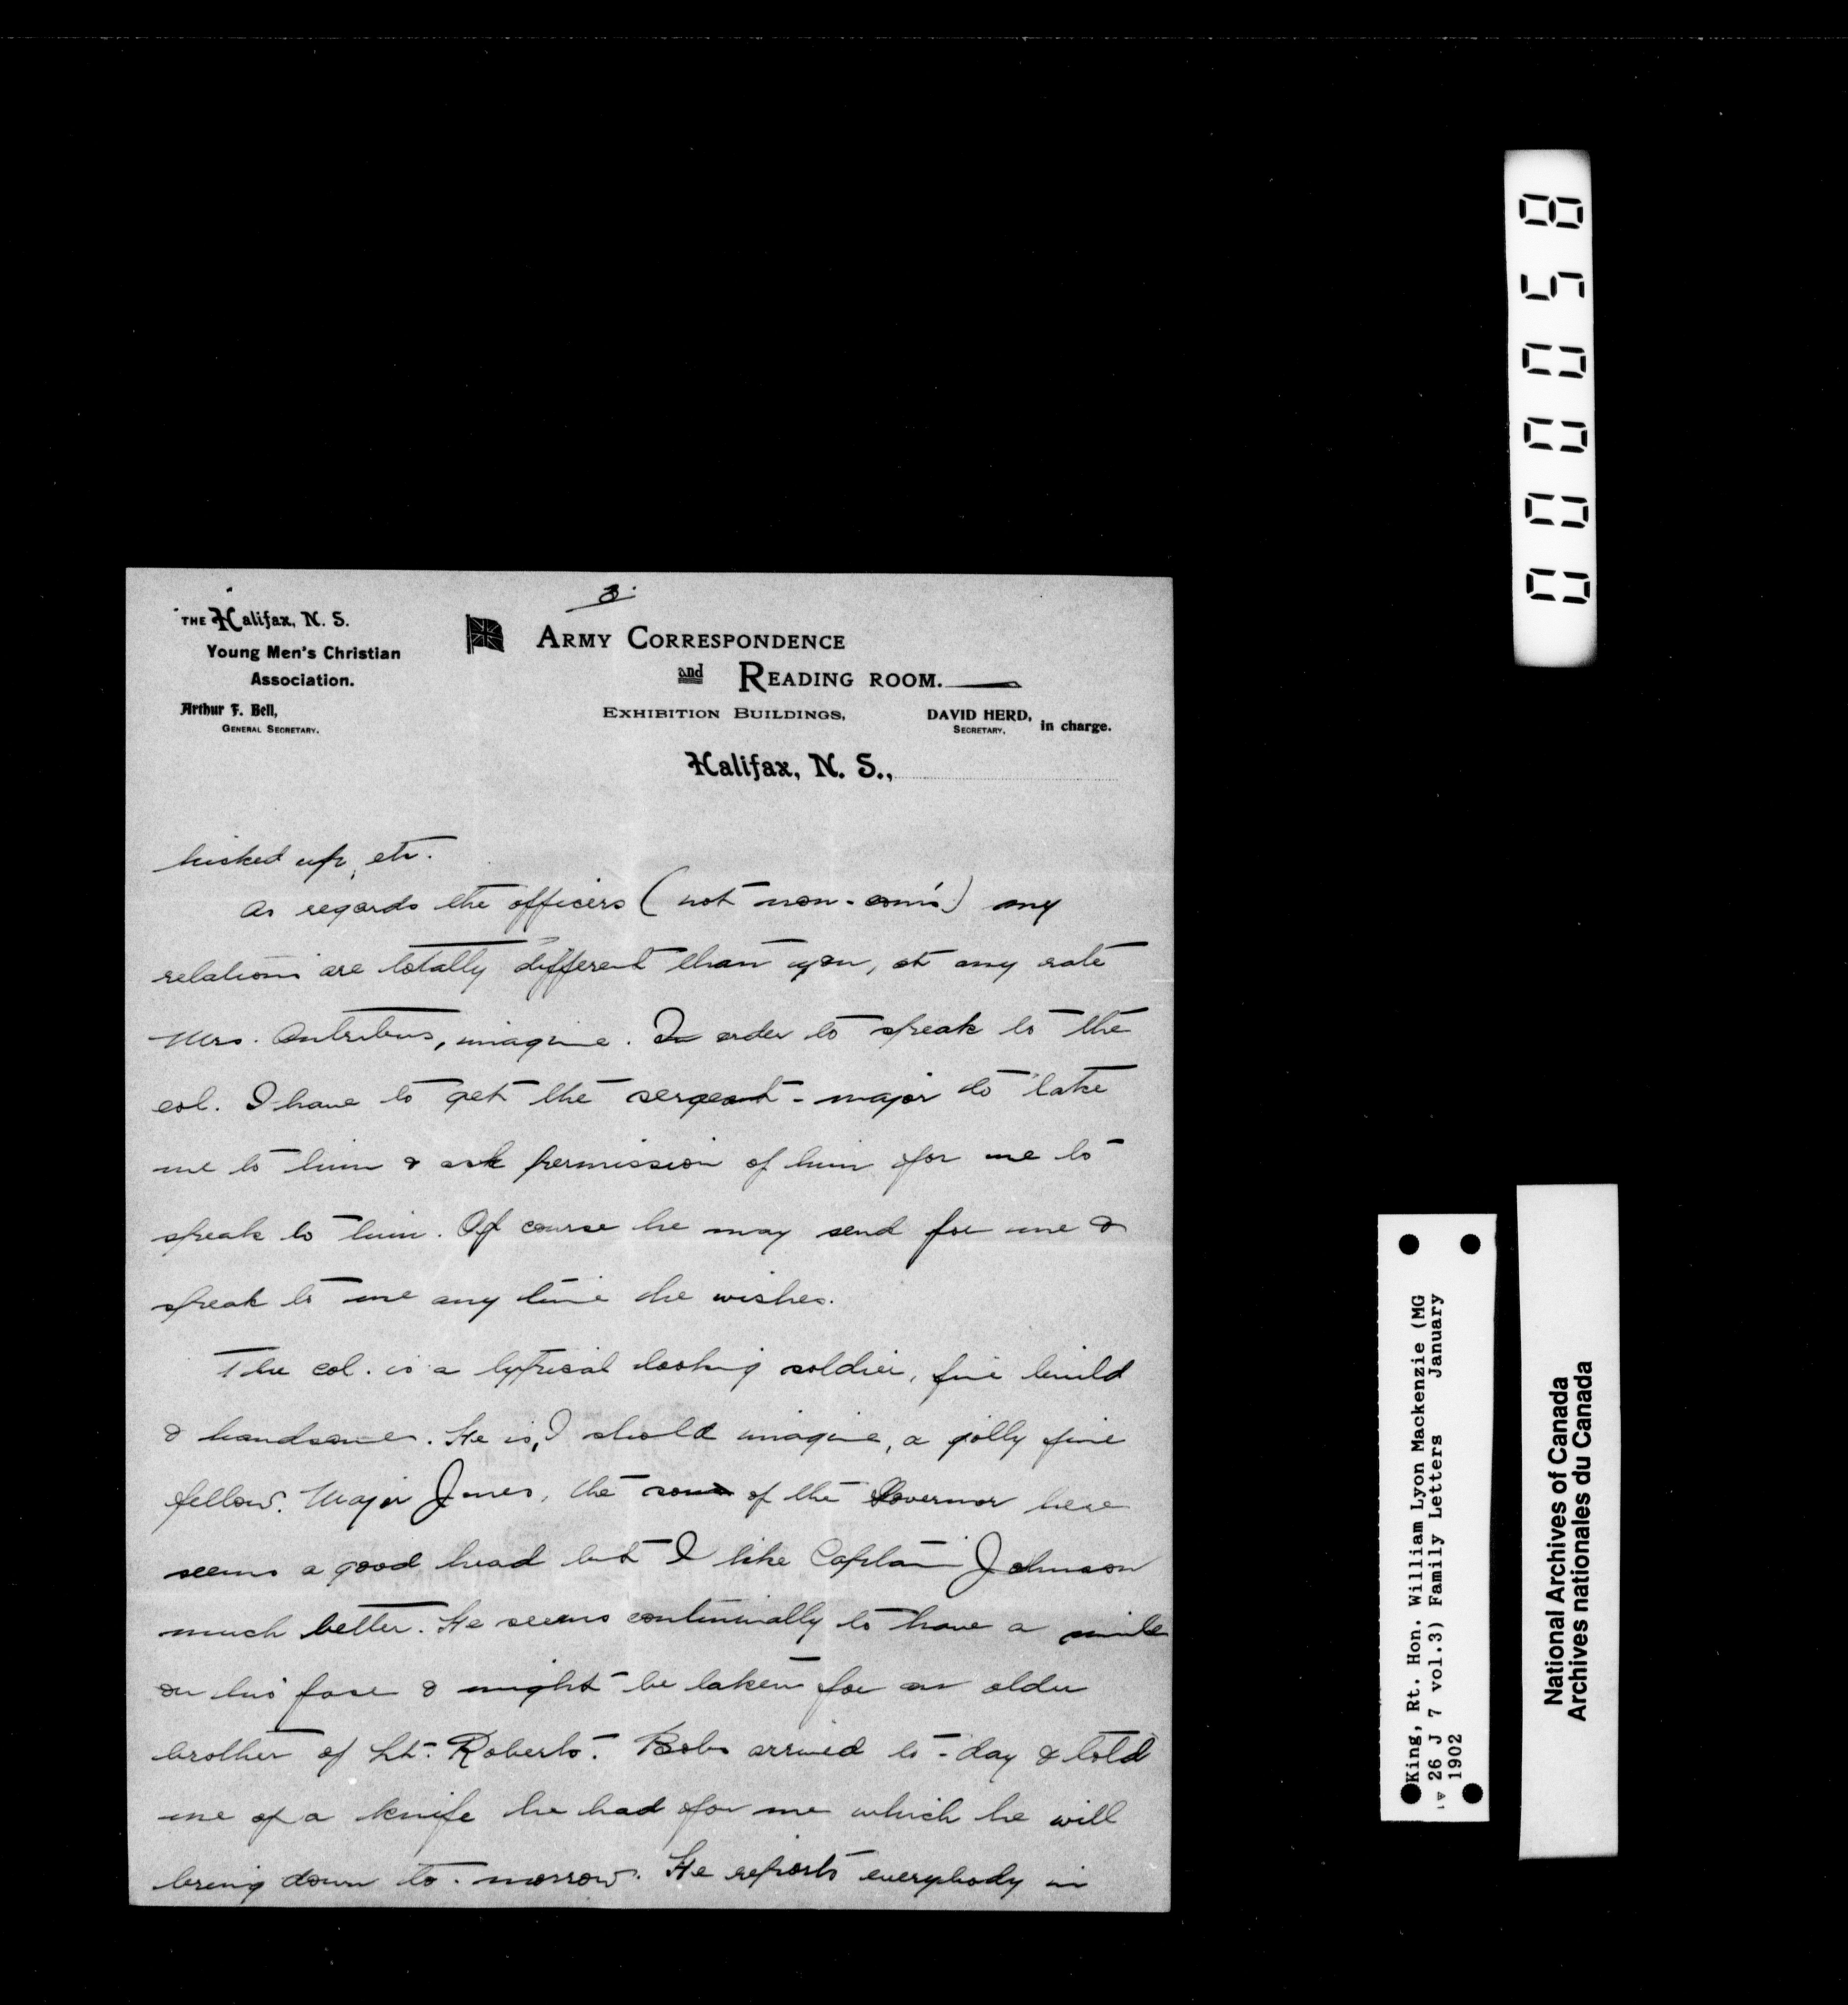 3.
THE Halifax, N. S.
Young Men's Christian
Association.
Arthur F. Bell,
GENERAL SECRETARY.
ARMY CORRESPONDENCE
and READING ROOM.
EXHIBITION BUILDINGS,
DAVID HERD,
SECRETARY.
in charge.
Halifax, N. S.,
kicked up, etc.
As regards the officers (not non-com's) my
relations are totally different than you, at any rate
Mrs. imagine. In order to speak to the
col. I have to get the sergeant-major to take
me to him & ask permission of him for me to
speak to him. Of course he may send for me &
speak to me any time he wishes.
The col. is a typical looking soldier, fine build
& handsome. He is, I should imagine, a jolly fine
fellow. Major Jones, the son of the Governor here
seems a good head but I like Captain Johnson
much better. He seems continually to have a smile
on his face & might be taken for an older
brother of Lt. Roberts. Bobs arrived to-day & told
me of a knife he had for me which he will
bring down to-morrow. He reports everybody in
000058
King, Rt. Hon. William Lyon Mackenzie (MG
26 J 7 vol.3) Family Letters January
1902
National Archives of Canada
Archives nationales du Canada